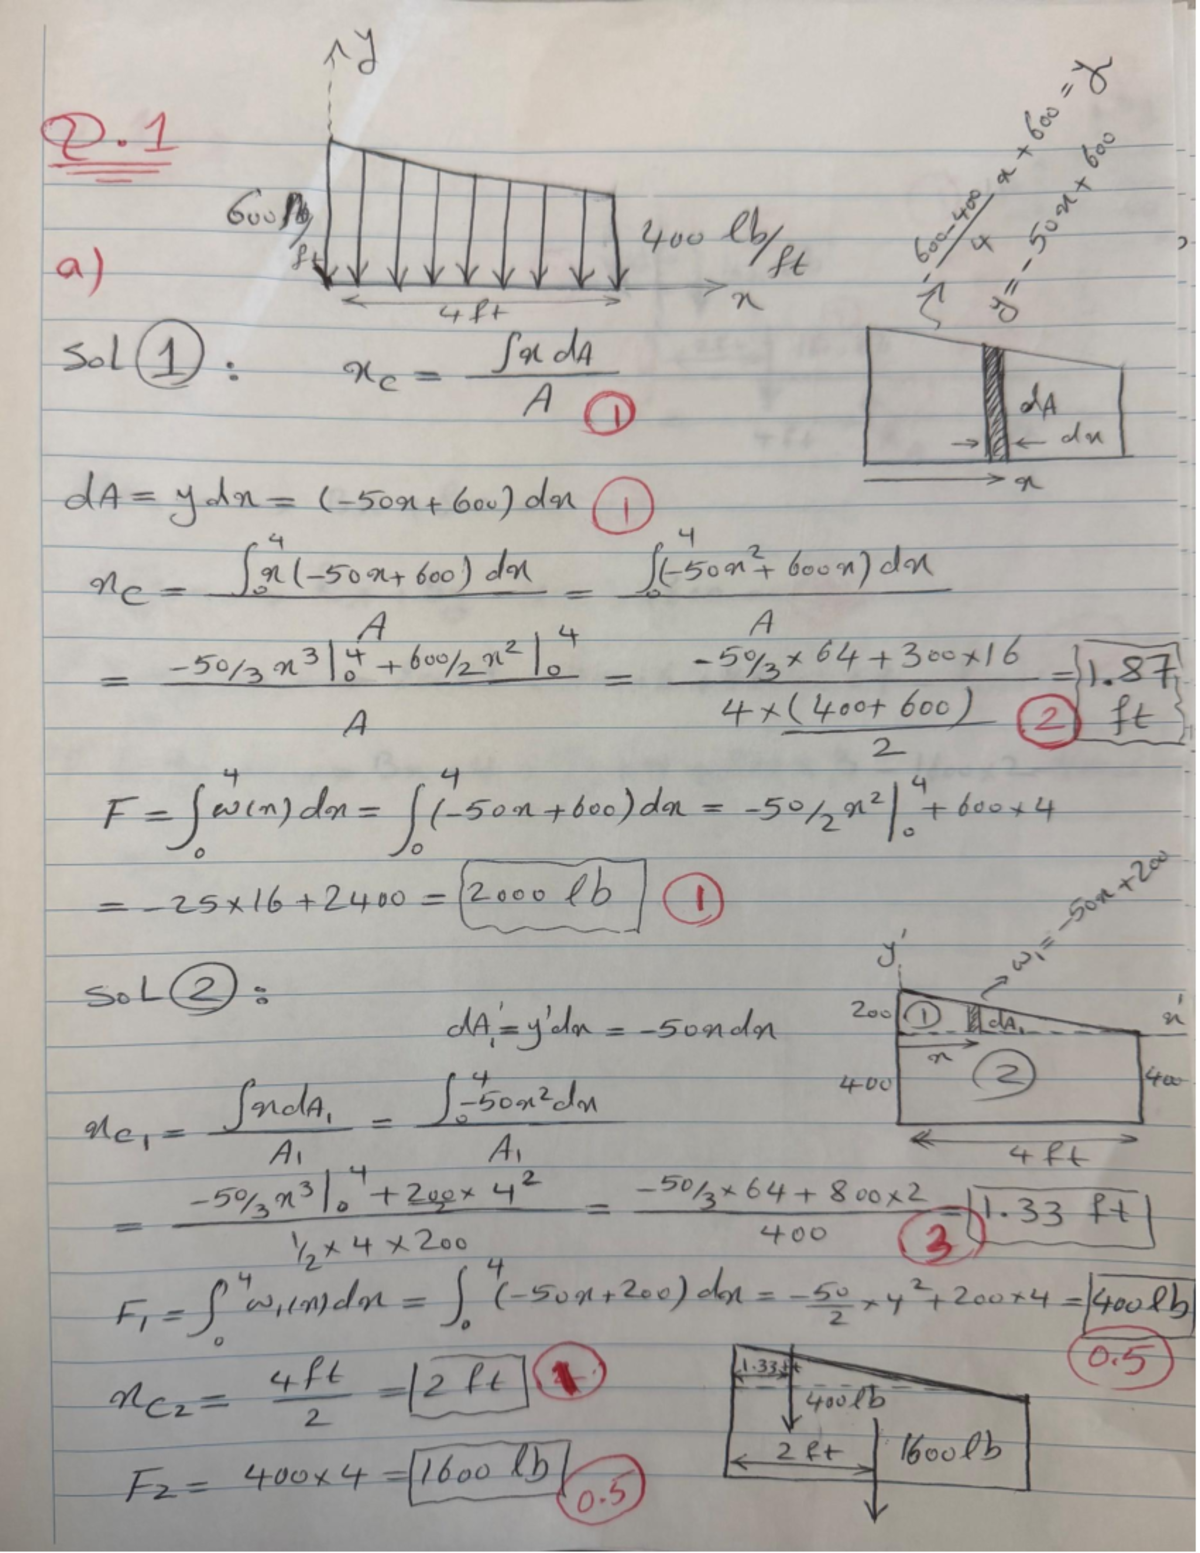 y
Q.1
600 lb/ft
400 lb/ft
a)
4 ft
x
-(600-400)/4 x + 600 = y
y = -50x + 600
Sol ① :
x_c = ∫x dA / A ①
dA
dx
x
dA = y dx = (-50x + 600) dx ①
x_c = ∫₀⁴ x(-50x + 600) dx / A = ∫₀⁴ (-50x² + 600x) dx / A
= (-50/3 x³|₀⁴ + 600/2 x²|₀⁴) / A = (-50/3 × 64 + 300 × 16) / (4 × (400 + 600)/2) = 1.87 ft ②
F = ∫₀⁴ w(x) dx = ∫₀⁴ (-50x + 600) dx = -50/2 x²|₀⁴ + 600 × 4
= -25 × 16 + 2400 = 2000 lb ①
w₁ = -50x + 200
Sol ② :
y'
200 ① dA₁ x'
x
400 ② 400
4 ft
dA₁' = y'dx = -50x dx
x_c₁ = ∫x dA₁ / A₁ = ∫₀⁴ -50x² dx / A₁
= (-50/3 x³|₀⁴ + 200/2 × 4²) / (1/2 × 4 × 200) = (-50/3 × 64 + 800 × 2) / 400 = 1.33 ft ③
F₁ = ∫₀⁴ w₁(x) dx = ∫₀⁴ (-50x + 200) dx = -50/2 × 4² + 200 × 4 = 400 lb
0.5
x_c₂ = 4 ft / 2 = 2 ft
1.33 ft
400 lb
2 ft
1600 lb
F₂ = 400 × 4 = 1600 lb
0.5